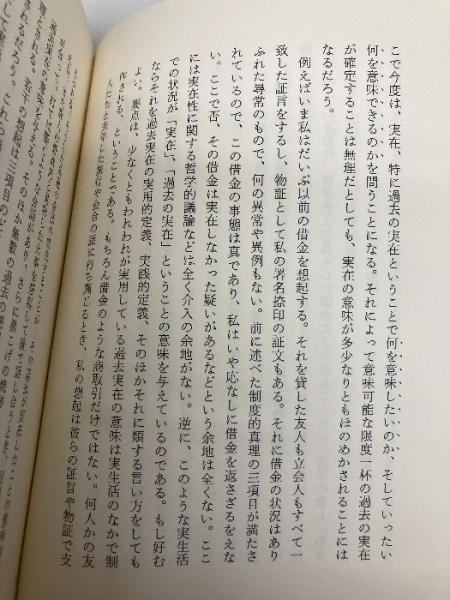 こで今度は、実在、特に過去の実在ということで何を意味したいのか、そしていったい
何を意味できるのかを問うことになる。それによって意味可能な限度一杯の過去の実在
が確定することは無理だとしても、実在の意味が多少なりともほのめかされることには
なるだろう。
例えばいま私はだいぶ以前の借金を想起する。それを貸した友人も立会人もすべて一
致した証言をするし、物証として私の署名捺印の証文もある。それに借金の状況はあり
ふれた尋常のもので、何の異常や異例もない。前に述べた制度的真理の三項目が満たさ
れているので、この借金の事態は真であり、私はいや応なしに借金を返さざるをえな
い。ここで否、その借金は実在しなかった疑いがあるなどという余地は全くない。ここ
には実在性に関する哲学的議論などは全く介入の余地がない。逆に、このような実生活
での状況が「実在」、「過去の実在」ということの意味を与えているのである。もし好む
ならそれを過去実在の実用的定義、実践的定義、そのほかそれに類する言い方をしても
よい。要点は、少なくともわれわれが実用している過去実在の意味は実生活のなかで制
作される、ということである。もちろん借金のような商取引だけではない。何人かの友
人たちと去年した旅行や会合の話に打ち興じるとき、私の想起は彼らの証言や物証で支